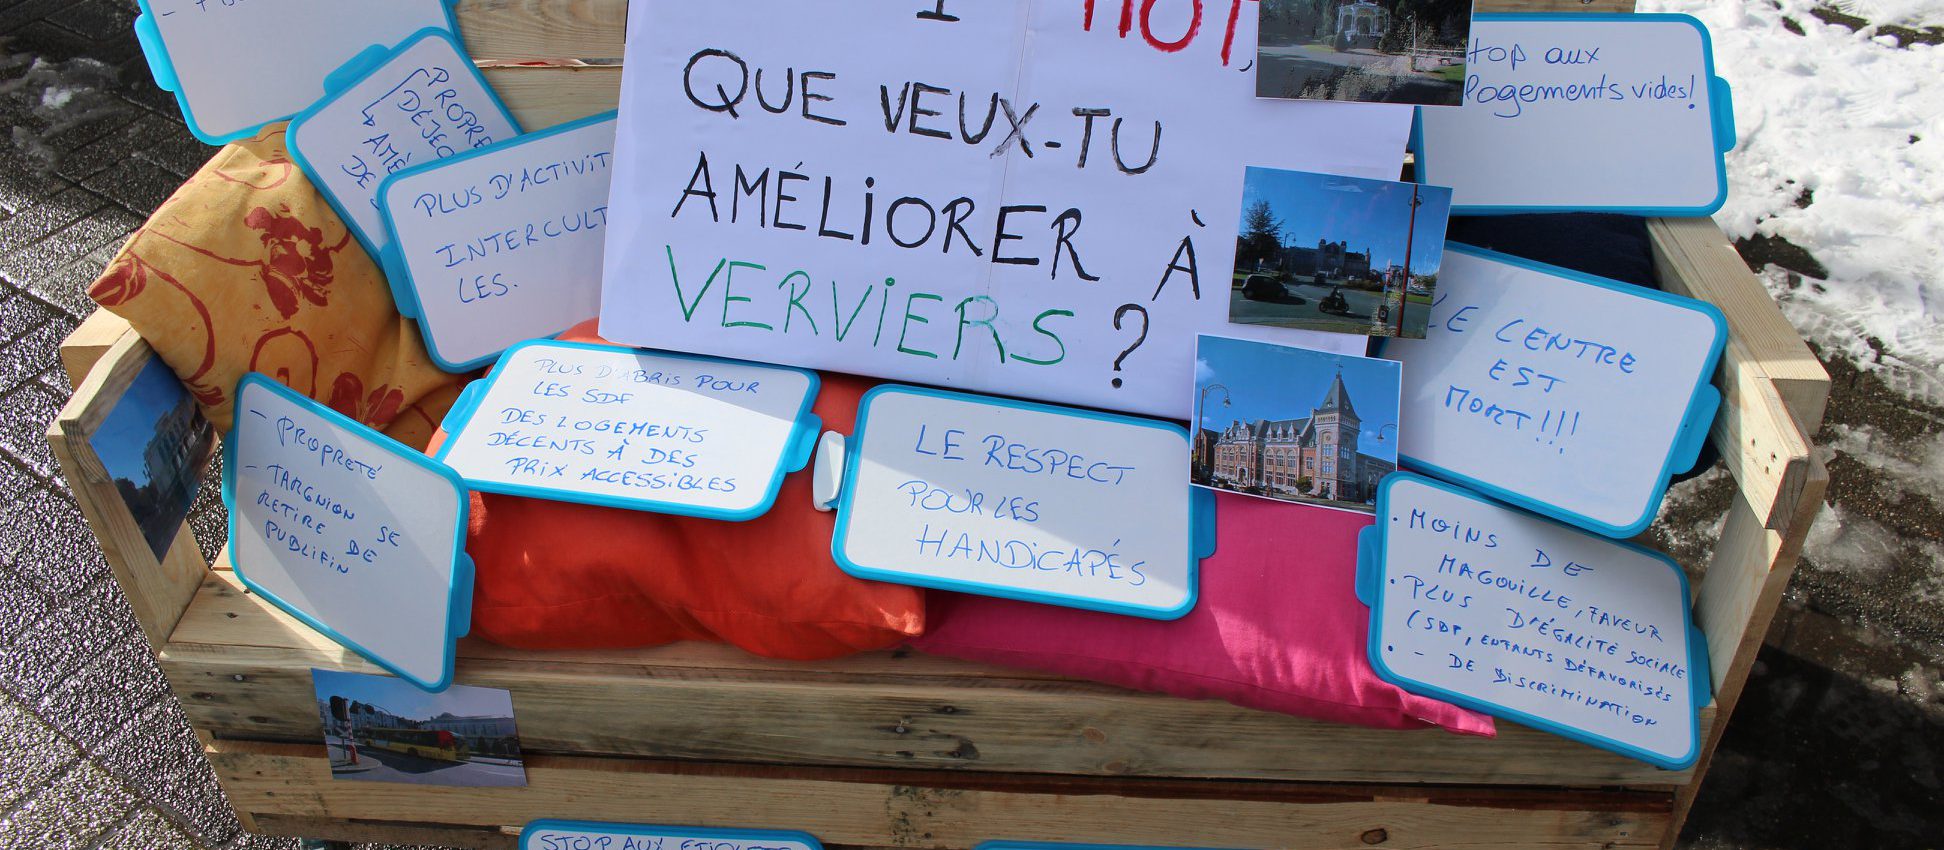 1 MOT,
QUE VEUX-TU
AMÉLIORER À
VERVIERS ?
PROPRE
DÉJEC
AMÉ
DE
PLUS D'ACTIVIT
INTERCULT
LES.
stop aux
logements vides!
LE CENTRE
EST
MORT!!!
PLUS D'ABRIS POUR
LES SDF
DES LOGEMENTS
DÉCENTS À DES
PRIX ACCESSIBLES
- PROPRETÉ
- TARGNION SE
RETIRE DE
PUBLIFIN
LE RESPECT
POUR LES
HANDICAPÉS
• MOINS DE
MAGOUILLE, FAVEUR
• PLUS D'ÉGALITÉ SOCIALE
(SDF, ENFANTS DÉFAVORISÉS
• - DE DISCRIMINATION
STOP AUX